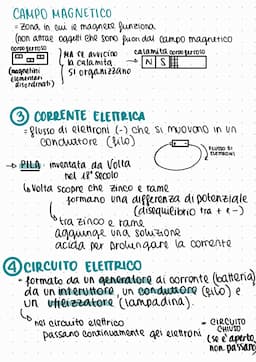 CAMPO MAGNETICO
= zona in cui le magnete funziona
(non attrae oggetti che sono fuori dal campo magnetico
corpo ferroso
(magnetini elementari disordinati)
MA se avvicino la calamita si organizzano
calamita corpo ferroso
N S
③ CORRENTE ELETTRICA
= flusso di elettroni (-) che si muovono in un
conduttore (filo)
FLUSSO DI ELETTRONI
→ PILA: inventata da Volta
nel 18° secolo
↳ Volta scopre che zinco e rame
formano una differenza di potenziale
(disequilibrio tra + e -)
↳ tra zinco e rame
aggiunge una soluzione
acida per prolungare la corrente
④ CIRCUITO ELETTRICO
= formato da un generatore di corrente (batteria)
da un interruttore, un conduttore (filo) e
un utilizzatore (lampadina).
↳ nel circuito elettrico
passano continuamente gli elettroni
= CIRCUITO CHIUSO
(se è aperto non passano)